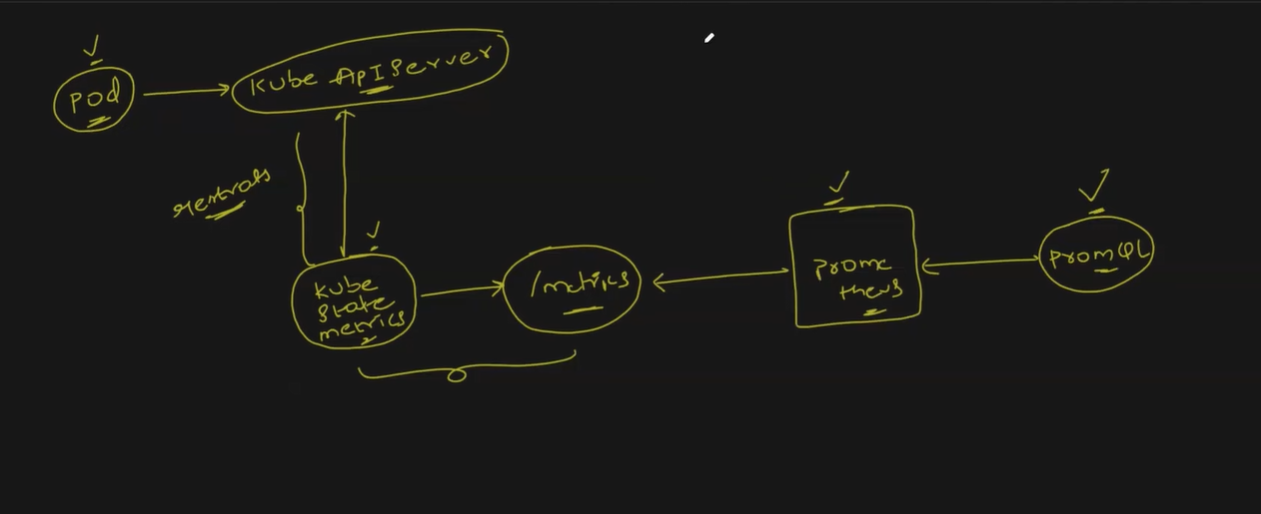 Pod
Kube API Server
restrats
Kube
State
metrics
/metrics
Prome
theus
PromQL